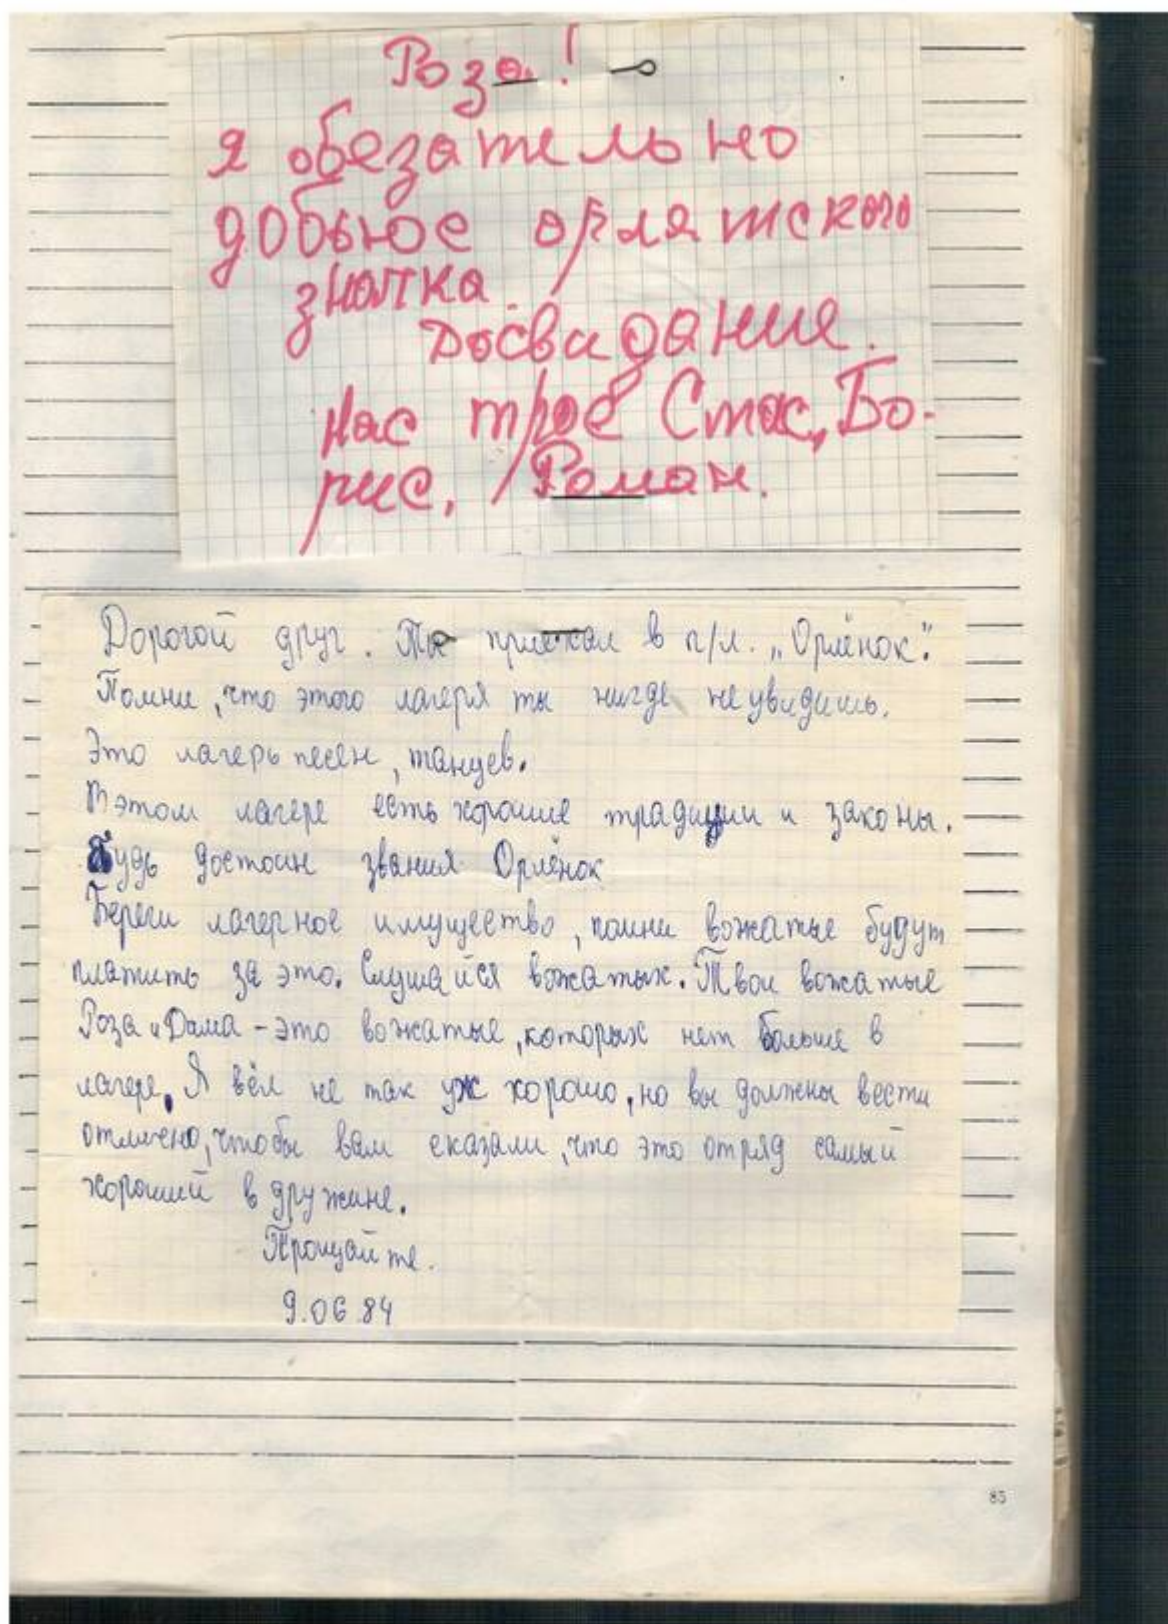 Роза!
я обезательно
добьюс орлятского
значка.
Досвидание.
Нас трое Стас, Бо-
рис, Роман.
Дорогой друг. Ты приехал в п/л. „Орлёнок".
Помни, что этого лагеря ты нигде не увидишь.
Это лагерь песен, танцев.
В этом лагере есть хорошие традиции и законы.
Будь достоин звания Орлёнок
Береги лагерное имущество, помни вожатые будут
платить за это. Слушайся вожатых. Твои вожатые
Роза и Дама - это вожатые, которых нет больше в
лагере. Я вёл не так уж хорошо, но вы должны вести
отлично, чтобы вам сказали, что это отряд самый
хороший в дружине.
Прощайте.
9.06.84
85